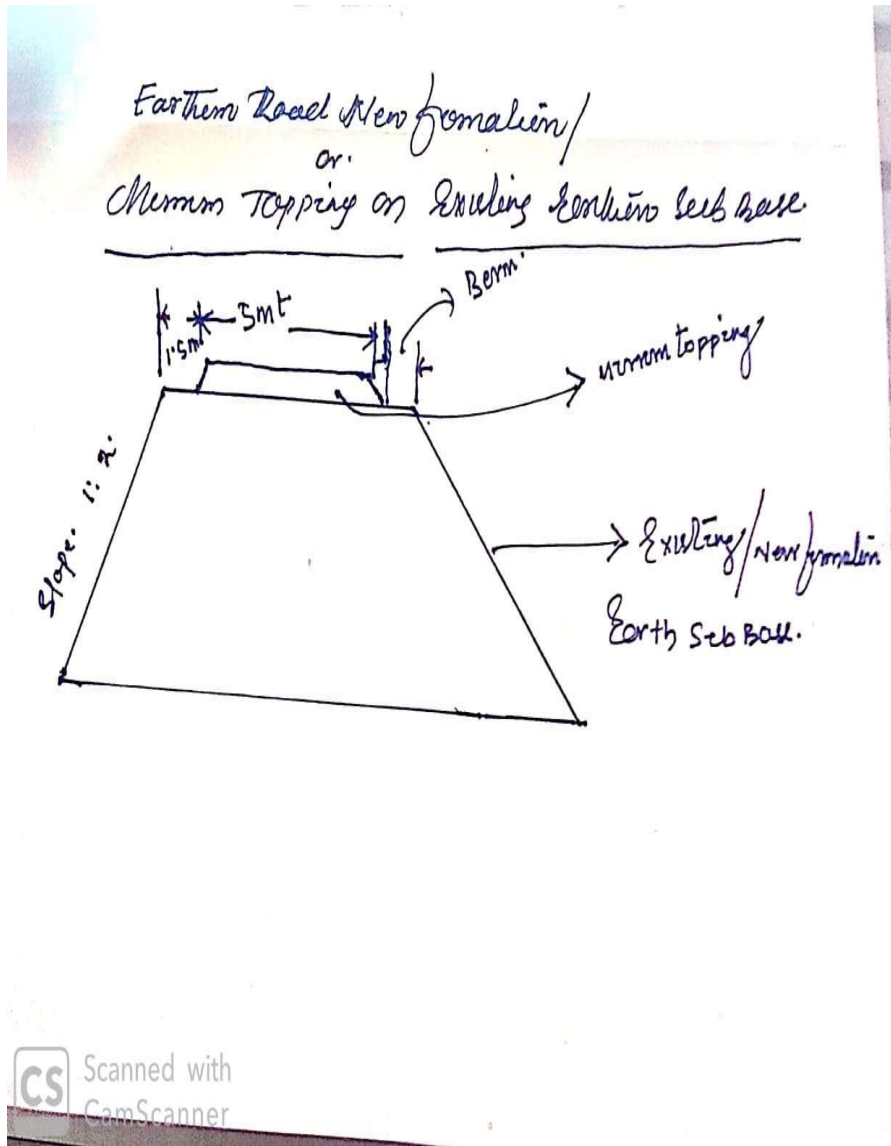 Earthern Road New formation/
or.
Murrum Topping on Existing Earthern Sub Base.
Berm.
5mt
1.5m
murrum topping
Slope. 1:2.
Existing/New formation
Earth Sub Base.
CS Scanned with
CamScanner